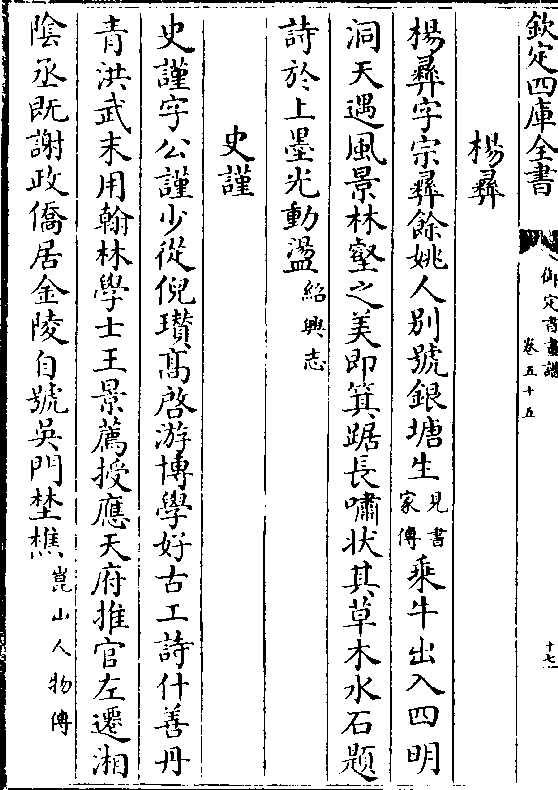 欽定四庫全書
御定書畫譜
卷五十五
十七
楊彝
楊彝字宗彝餘姚人别號銀塘生見書家傳乘牛出入四明
洞天遇風景林壑之美即箕踞長嘯状其草木水石題
詩於上墨光動盪紹興志
史謹
史謹字公謹少從倪瓚髙啓游博學好古工詩什善丹
青洪武末用翰林學士王景薦授應天府推官左遷湘
隂丞既謝政僑居金陵自號吳門埜樵崑山人物傳